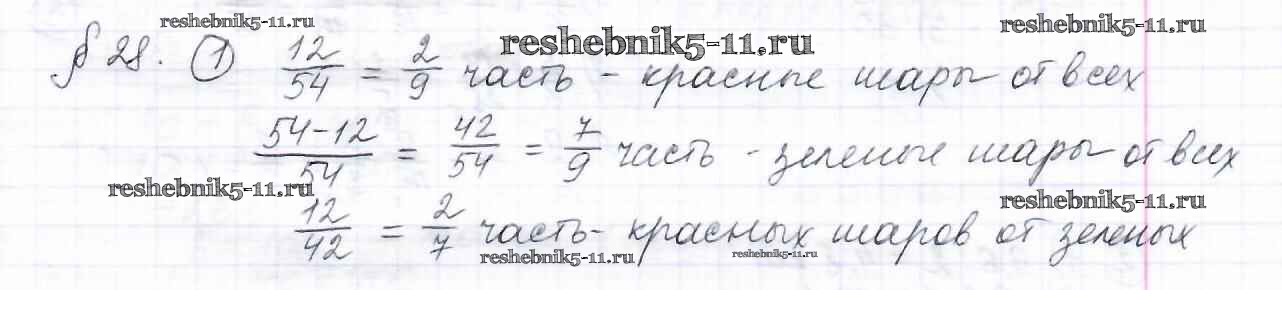 reshebnik5-11.ru
reshebnik5-11.ru
reshebnik5-11.ru
§ 28. ① 12/54 = 2/9 часть - красные шары от всех
(54-12)/54 = 42/54 = 7/9 часть - зеленые шары от всех
reshebnik5-11.ru
reshebnik5-11.ru
12/42 = 2/7 часть - красных шаров от зеленых
reshebnik5-11.ru
reshebnik5-11.ru